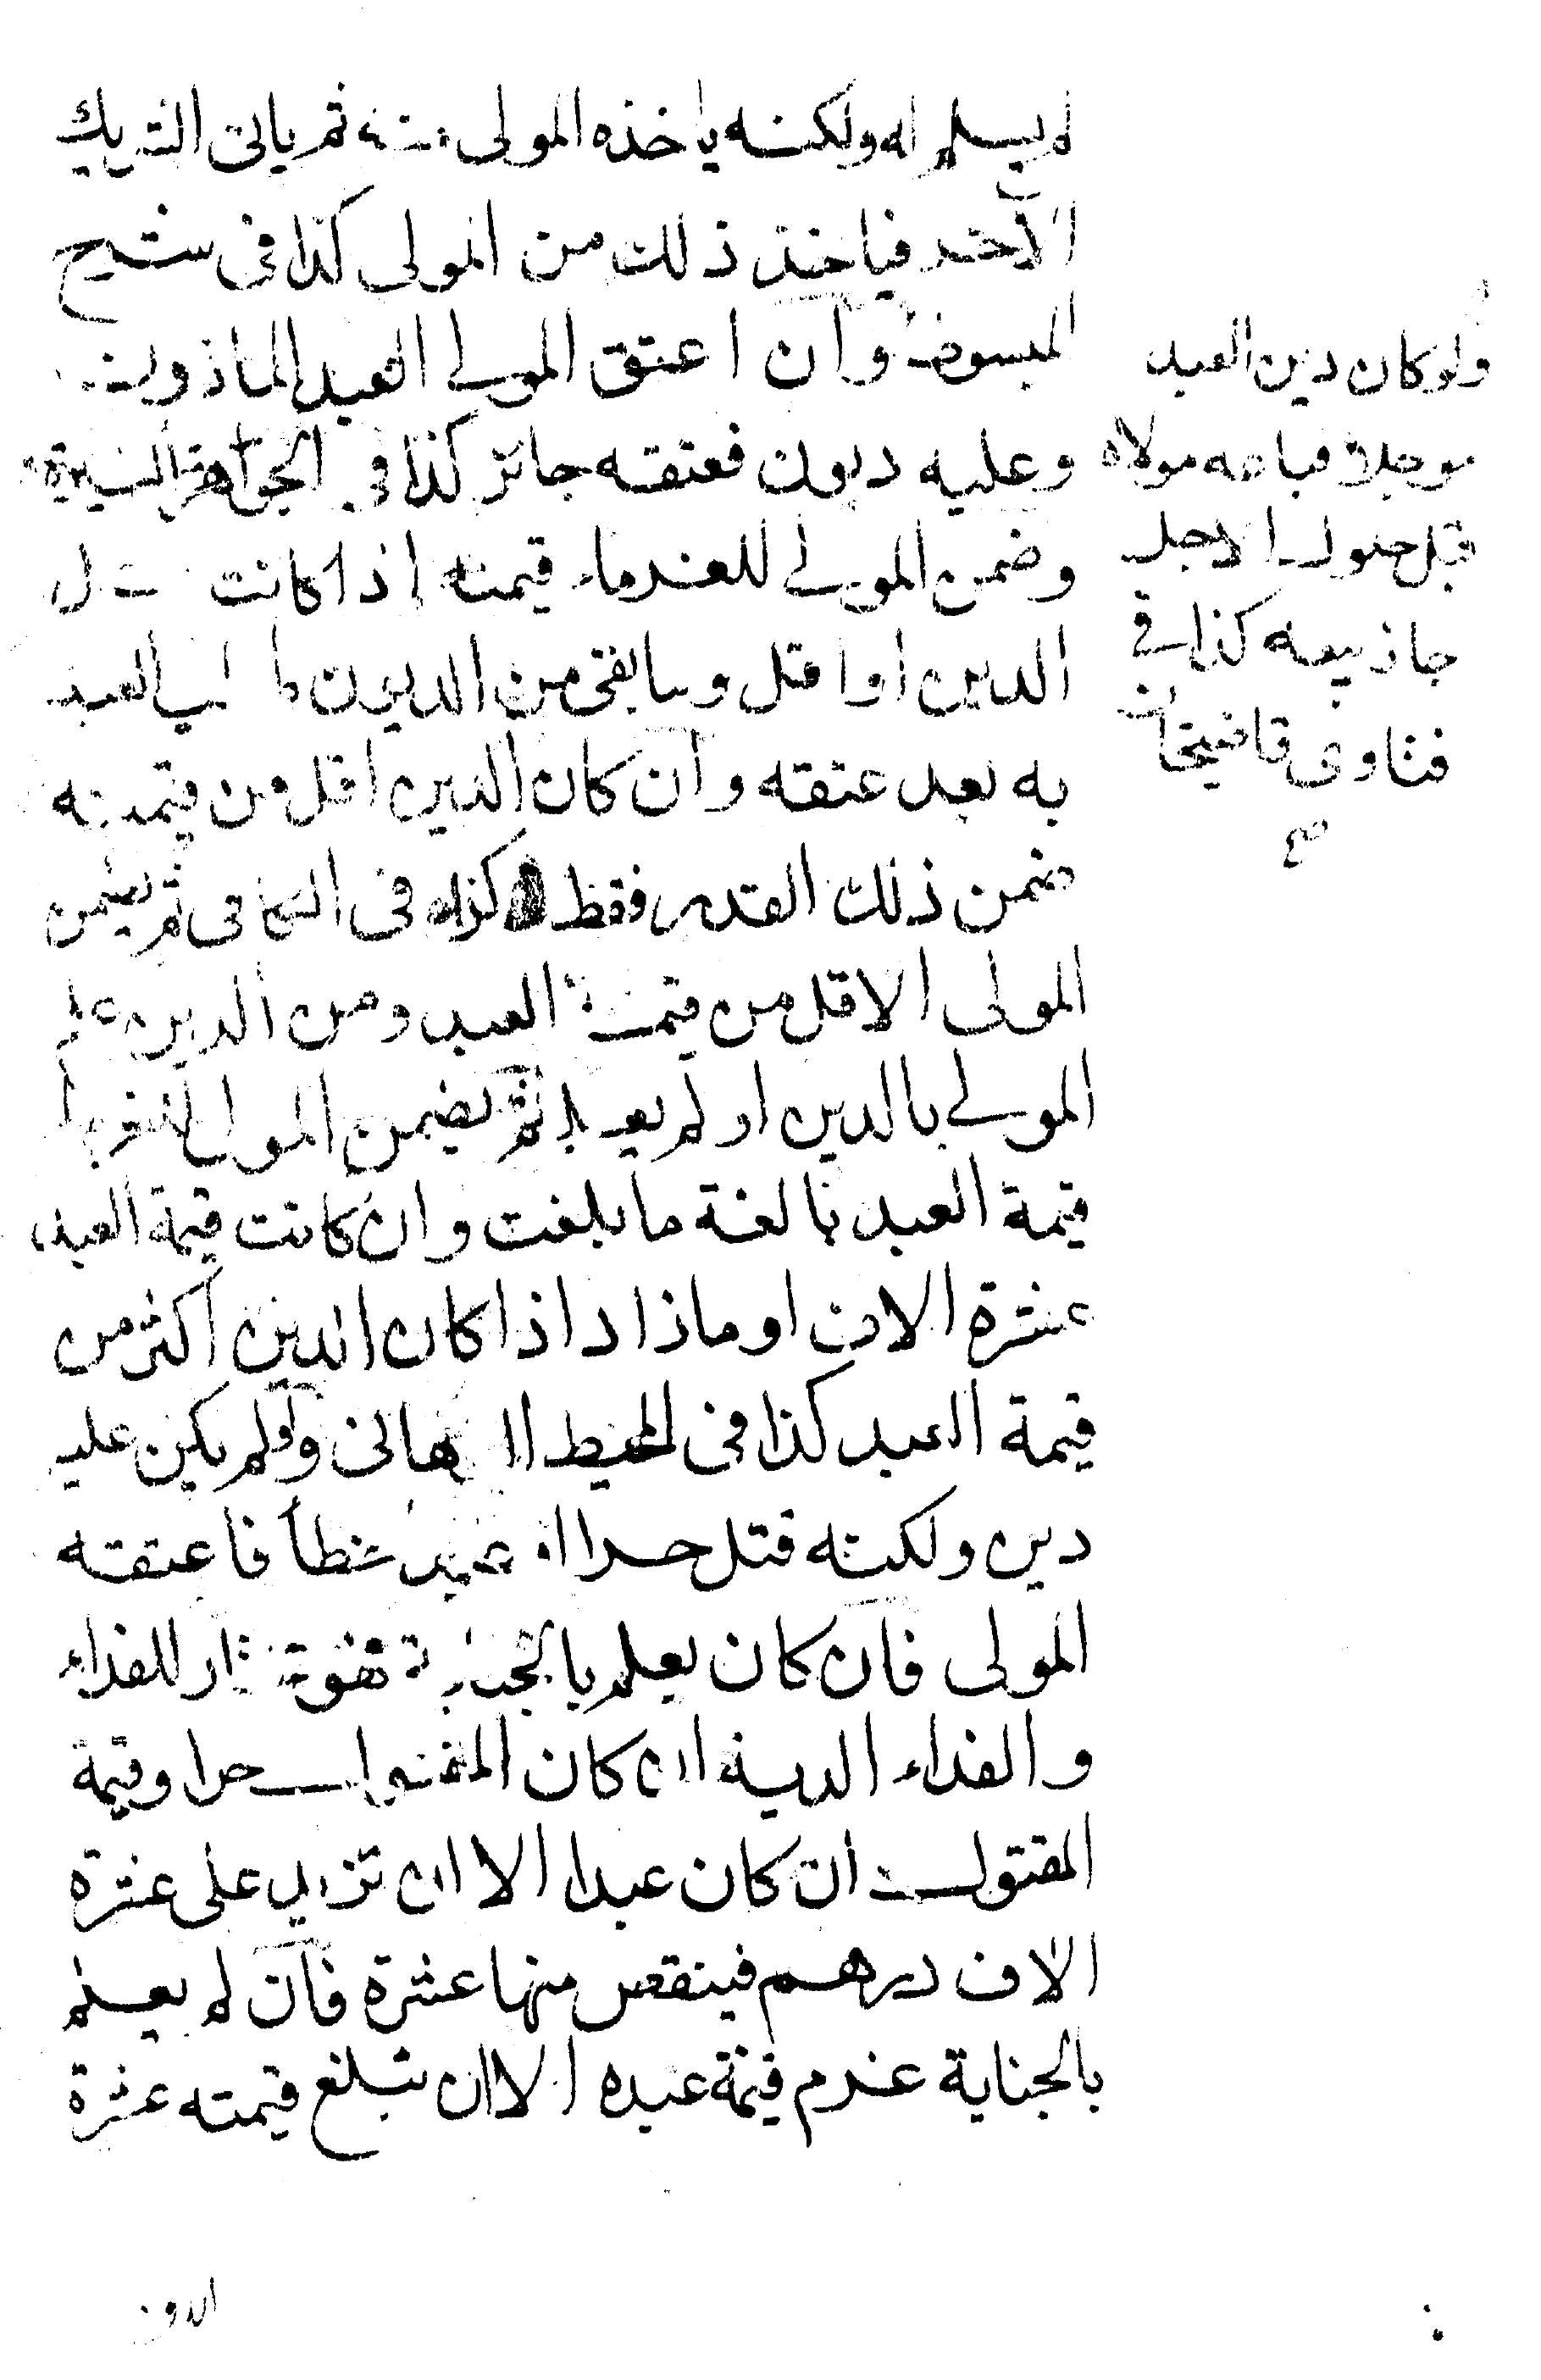 لم يسلم له ولكنه ياخذه المولى منه ثم ياتى الشريك
الآخر فياخذ ذلك من المولى كذا فى شرح
المبسوط وان اعتق المولى العبد الماذون
وعليه ديون فعتقه جائز كذا فى الجواهر النيرة
وضمن المولى للغرماء قيمته اذا كانت مثل
الدين او اقل وما بقى من الديون طالب العبد
به بعد عتقه وان كان الدين اقل من قيمته
ضمن ذلك القدر فقط كذا فى الكافى ثم يضمن
المولى الاقل من قيمة العبد ومن الدين علم
المولى بالدين او لم يعلم ثم يضمن المولى للغرماء
قيمة العبد بالغة ما بلغت وان كانت قيمة العبد
عشرة الاف او ما زاد اذا كان الدين اكثر من
قيمة العبد كذا فى المحيط البرهانى ولو لم يكن عليه
دين ولكنه قتل حرا او عبدا خطأ فاعتقه
المولى فان كان يعلم بالجناية فهو مختار للفداء
والفداء الدية ان كان المقتول حرا وقيمة
المقتول ان كان عبدا الا ان تزيد على عشرة
الاف درهم فينقص منها عشرة فان لم يعلم
بالجناية غرم قيمة عبده الا ان تبلغ قيمته عشرة
ولو كان دين العبد
موجلا فباعه مولاه
قبل حلول الاجل
جاز بيعه كذا فى
فتاوى قاضيخان
صح